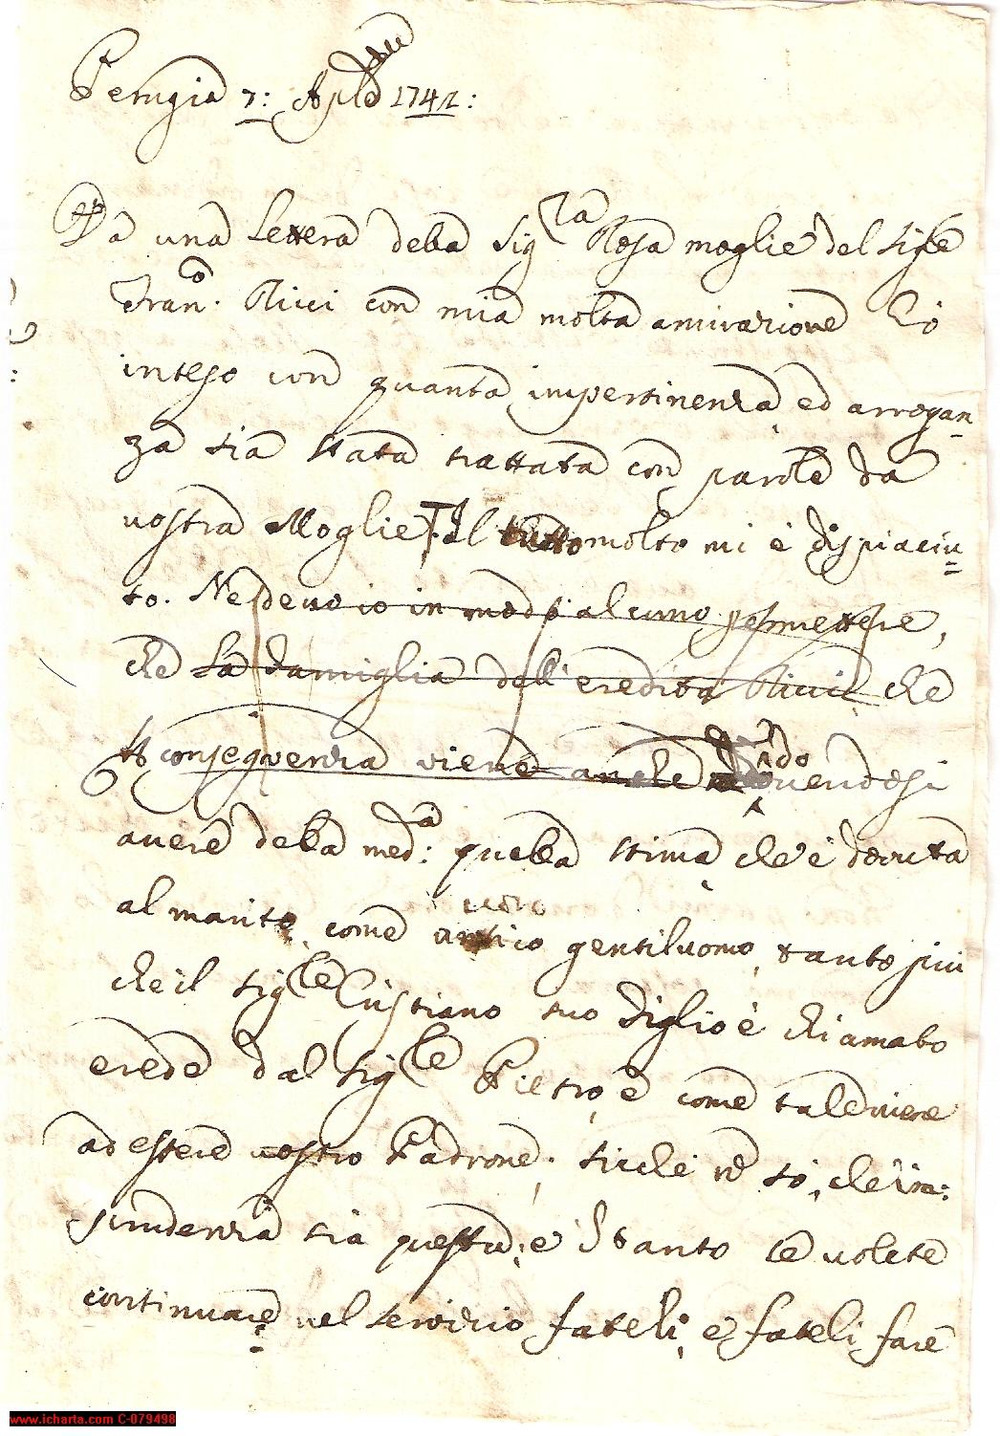 Perugia 7: Aple 1742:
Da una lettera della Sigra Rosa moglie del Sigre
Franco. Ricci con mia molta amirazione hò
inteso con quanta impertinenza, ed arrogan
za sia stata trattata con parole da
vostra Moglie. Il tutto molto mi è dispiaciu
to. Ne devo io in modo alcuno permettere,
che la famiglia dell'eredita Ricci che
consequenza viene anche dovendosi
avere della meda: quella stima che è dovuta
al marito, come vero antico gentiluomo, tanto più
che il Sigre Cristiano suo figlio è chiamato
erede dal Sigre Pietro, e come tale viene
ad essere vostro Padrone, sicche nò sò, che im:
prudenza sia questa; e intanto se volete
continuare nel servizio fateli, e fateli fare
www.icharta.com C-079498